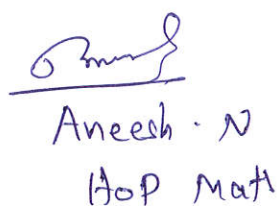 Aneesh . N
HoP Math